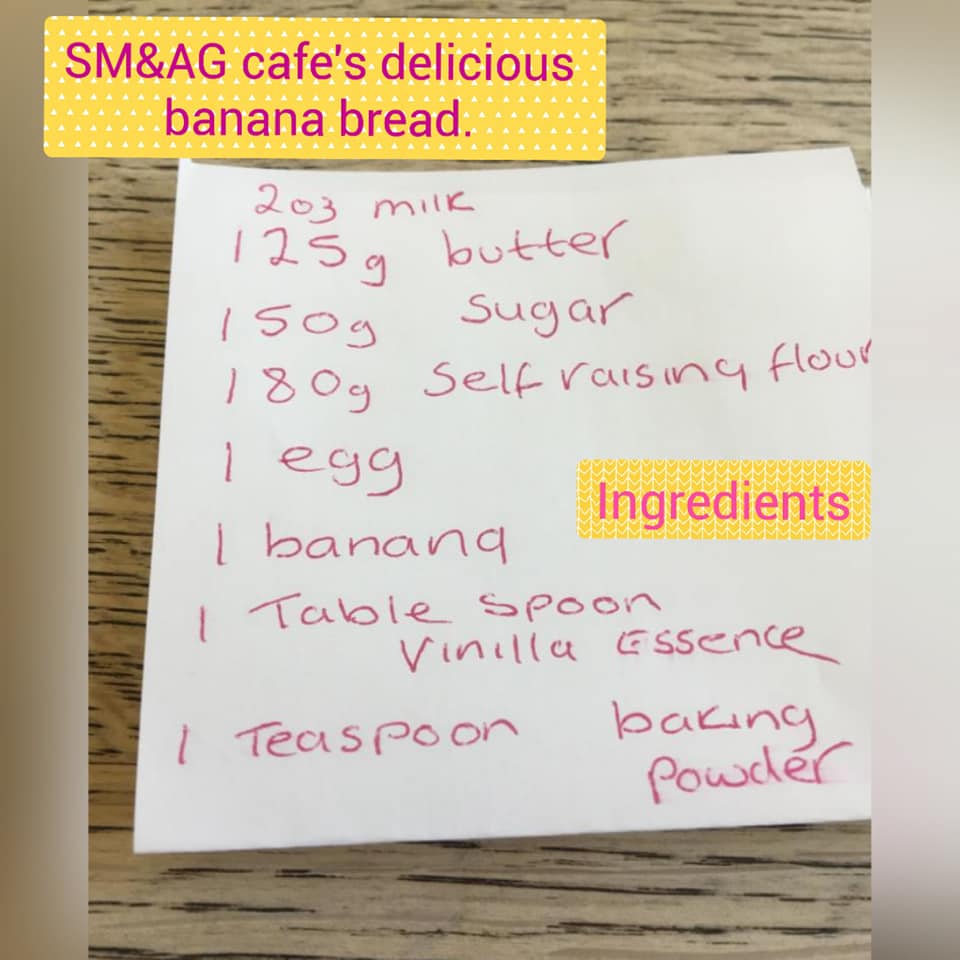 SM&AG cafe's delicious
banana bread.
2oz milk
125g butter
150g sugar
180g Self raising flour
1 egg
Ingredients
1 banana
1 Table spoon
Vinilla Essence
1 Teaspoon baking
Powder